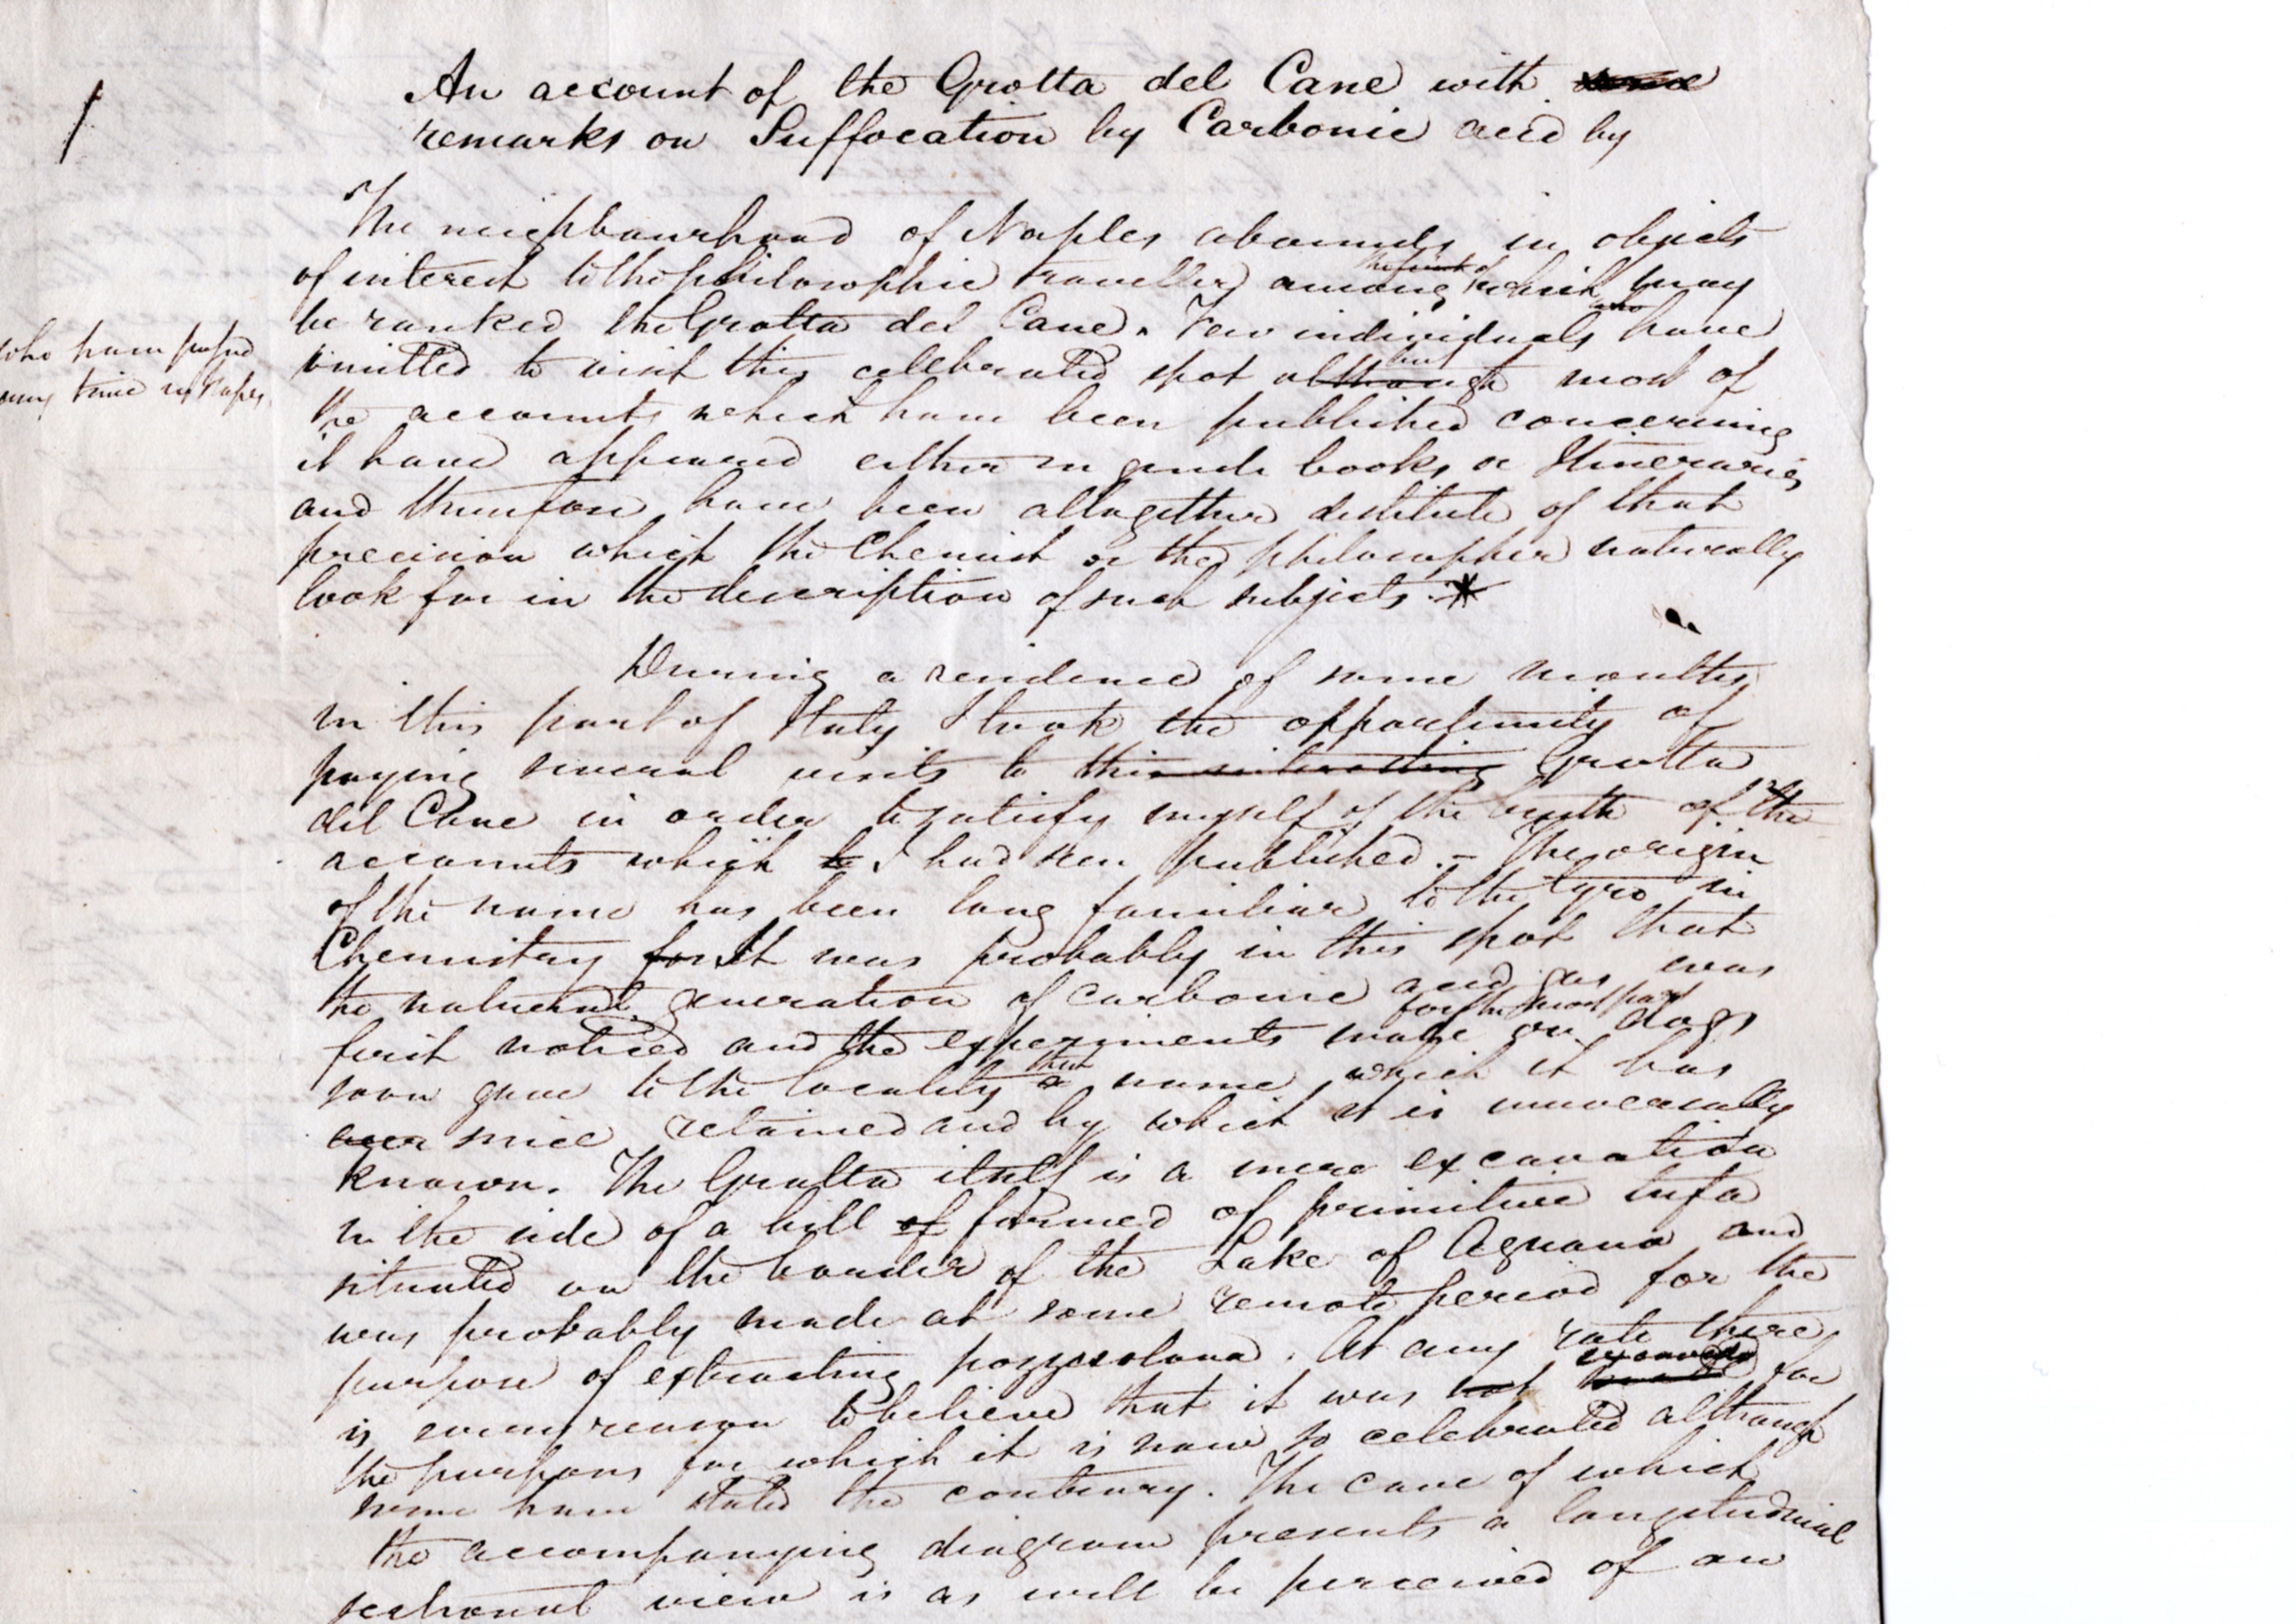 An account of the Grotta del Cane with some
remarks on Suffocation by Carbonic acid by
The neighbourhood of Naples abounds in objects
of interest to the philosophic traveller among the first of which may
be ranked the Grotta del Cane. Few individuals who have
who have passed
any time in Naples
omitted to visit this celebrated spot although but most of
the accounts which have been published concerning
it have appeared either in guide books or Itineraries
and therefore have been altogether destitute of that
precision which the Chemist or the philosopher naturally
look for in the description of such subjects. *
During a residence of some months
in this part of Italy I took the opportunity of
paying several visits to this interesting Grotta
del Cane in order to satisfy myself of the truth of the
accounts which I had seen published. – The origin
of the name has been long familiar to the tyro in
Chemistry for It was probably in this spot that
the natural generation of carbonic acid gas was
first noticed and the experiments for the most part made on dogs
soon gave to the locality a that name which it has
ever since retained and by which it is universally
known. The Grotta itself is a mere excavation
in the side of a hill of formed of primitive tufa
situated on the border of the Lake of Agnano and
was probably made at some remote period for the
purpose of extracting pozzolana. At any rate there
is every reason to believe that it was not excavated for
the purposes for which it is now so celebrated although
some have stated the contrary. The cave of which
the accompanying diagram presents a longitudinal
sectional view is as will be perceived of an